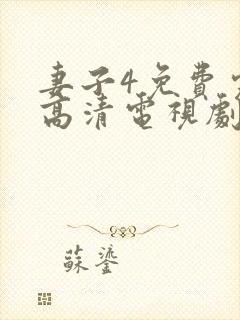 妻子4免費
高清電視劇
蘇鎏